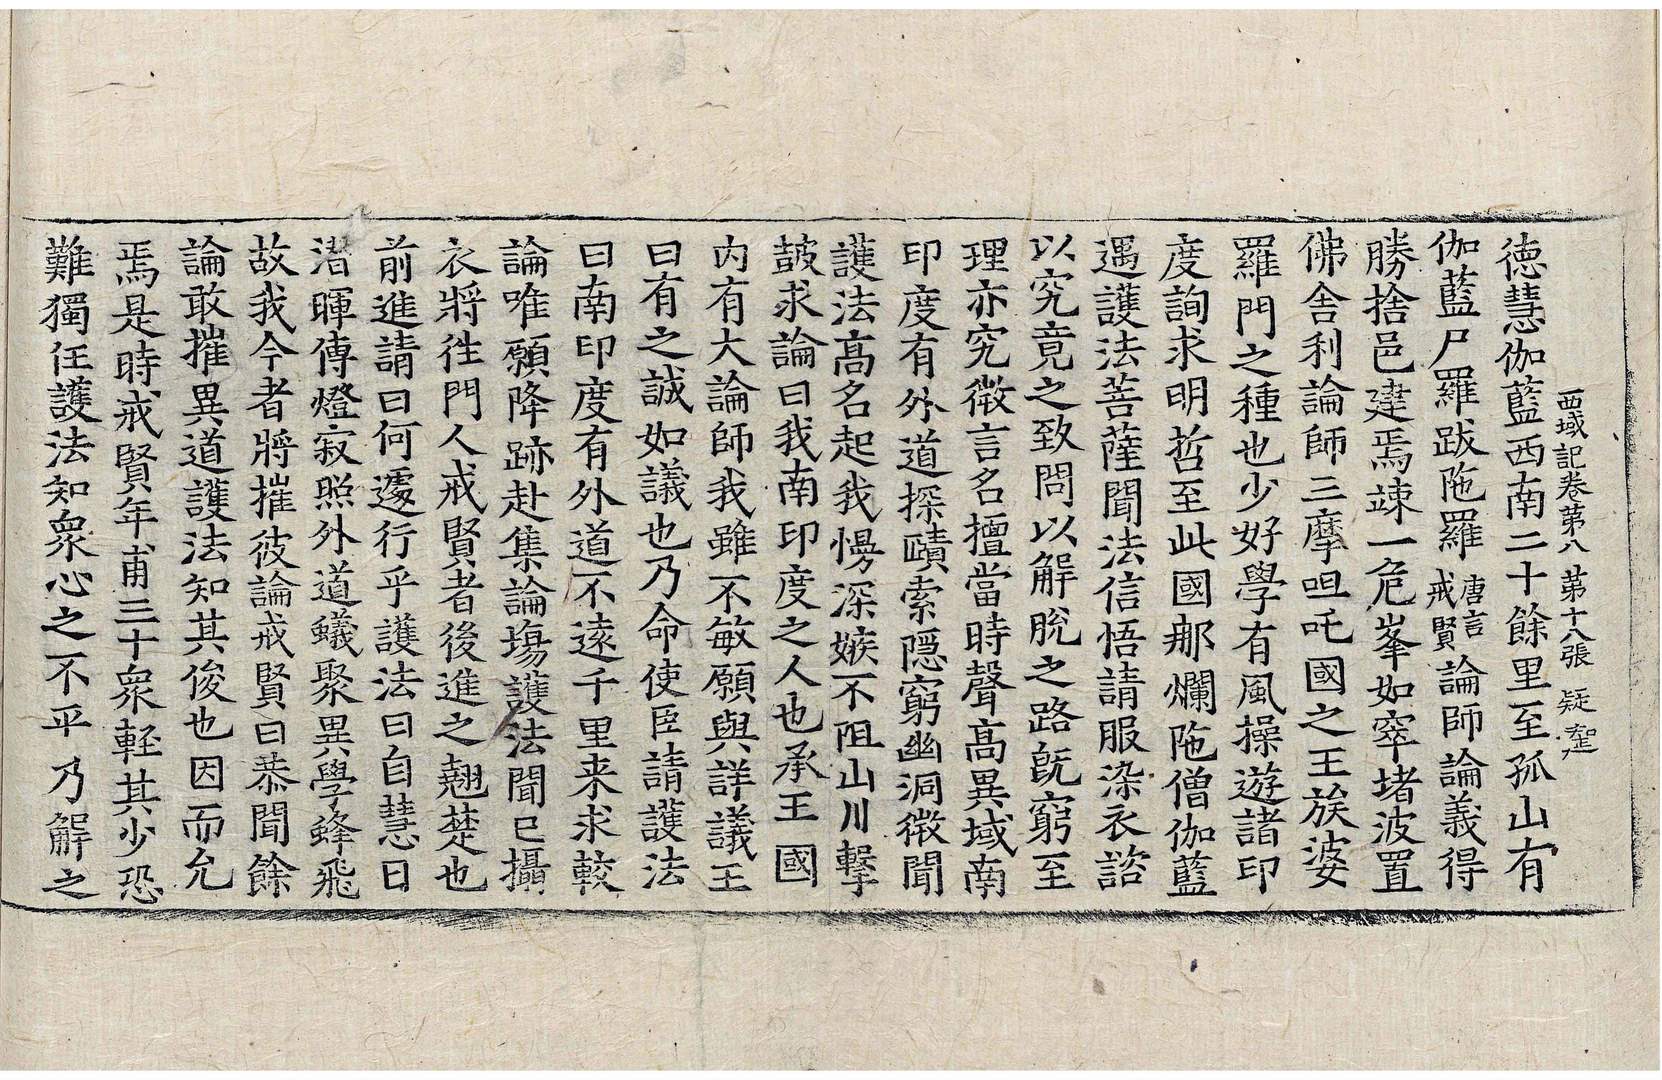 西域記卷第八 第十八張 疑
德慧伽藍西南二十餘里至孤山有
伽藍尸羅跋陁羅唐言戒賢論師論義得
勝捨邑建焉竦一危峯如窣堵波置
佛舍利論師三摩呾吒國之王族婆
羅門之種也少好學有風操遊諸印
度詢求明哲至此國那爛陁僧伽藍
遇護法菩薩聞法信悟請服染衣諮
以究竟之致問以解脫之路旣窮至
理亦究微言名擅當時聲高異域南
印度有外道探賾索隱窮幽洞微聞
護法高名起我慢深嫉不阻山川擊
鼓求論曰我南印度之人也承王國
內有大論師我雖不敏願與詳議王
曰有之誠如議也乃命使臣請護法
曰南印度有外道不遠千里来求較
論唯願降跡赴集論場護法聞已攝
衣將往門人戒賢者後進之翹楚也
前進請曰何遽行乎護法曰自慧日
潜暉傳燈寂照外道蟻聚異學蜂飛
故我今者將摧彼論戒賢曰恭聞餘
論敢摧異道護法知其俊也因而允
焉是時戒賢年甫三十衆輕其少恐
難獨任護法知衆心之不平乃解之